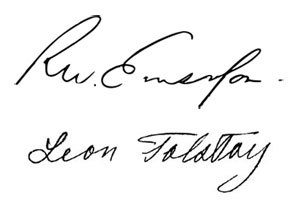 R.W. Emerson.
Leon Tolstoy